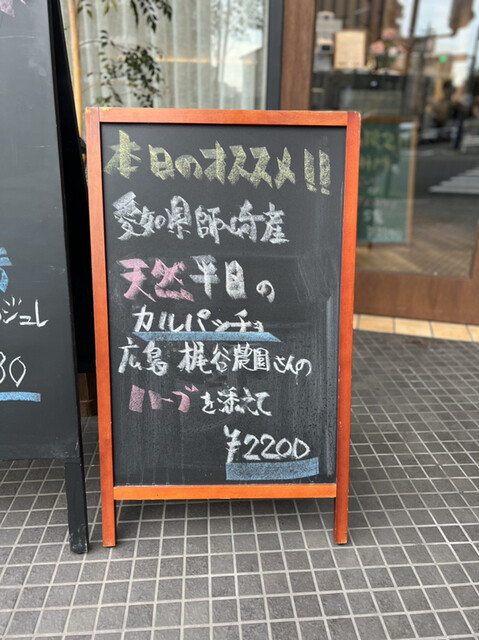 本日のオススメ!!
愛知県師崎産
天然平目の
カルパッチョ
広島 梶谷農園さんの
ハーブを添えて
¥2200
ジュレ
80